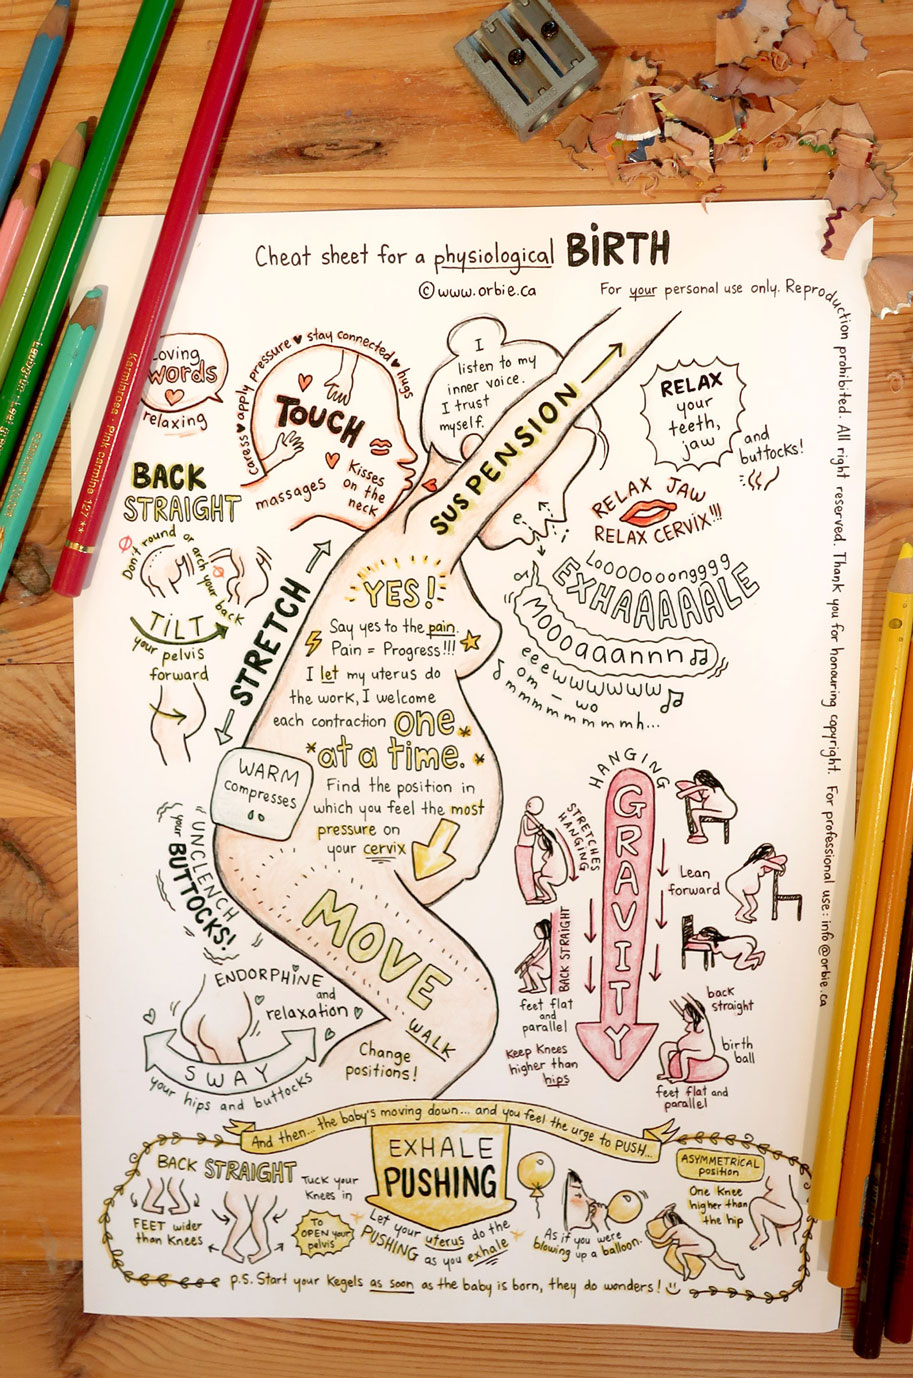 Cheat sheet for a physiological BIRTH
© www.orbie.ca
For your personal use only. Reproduction prohibited. All right reserved. Thank you for honouring copyright. For professional use: info@orbie.ca
Loving
words
relaxing
caress ♥ apply pressure ♥ stay connected ♥ hugs
TOUCH
massages
Kisses
on the
neck
I
listen to my
inner voice.
I trust
myself.
SUSPENSION
RELAX
your
teeth,
jaw
and
buttocks!
RELAX JAW
RELAX CERVIX!!!
BACK
STRAIGHT
Don't round or
arch your back
TILT
your pelvis
forward
STRETCH
Looooooongggg
EXHAAAAAALE
Moooaaannn
eeewwwwwww
om - wo
mmmmmmmmmh...
YES!
Say yes to the pain.
Pain = Progress!!!
I let my uterus do
the work, I welcome
each contraction one
at a time.
Find the position in
which you feel the most
pressure on
your cervix
WARM
compresses
UNCLENCH
your BUTTOCKS!
MOVE
WALK
Change
positions!
ENDORPHINE
and
relaxation
SWAY
your hips and buttocks
HANGING
STRETCHES
HANGING
GRAVITY
Lean
forward
BACK STRAIGHT
feet flat
and
parallel
Keep Knees
higher than
hips
back
straight
birth
ball
feet flat and
parallel
And then... the baby's moving down... and you feel the urge to PUSH...
EXHALE
PUSHING
BACK STRAIGHT
FEET wider
than Knees
Tuck your
Knees in
To
OPEN your
pelvis
Let your uterus do the
PUSHING as you exhale
As if you were
blowing up a balloon.
ASYMMETRICAL
position
One Knee
higher than
the hip
p.s. Start your Kegels as soon as the baby is born, they do wonders!
Karminrosa · Pink carmine 127